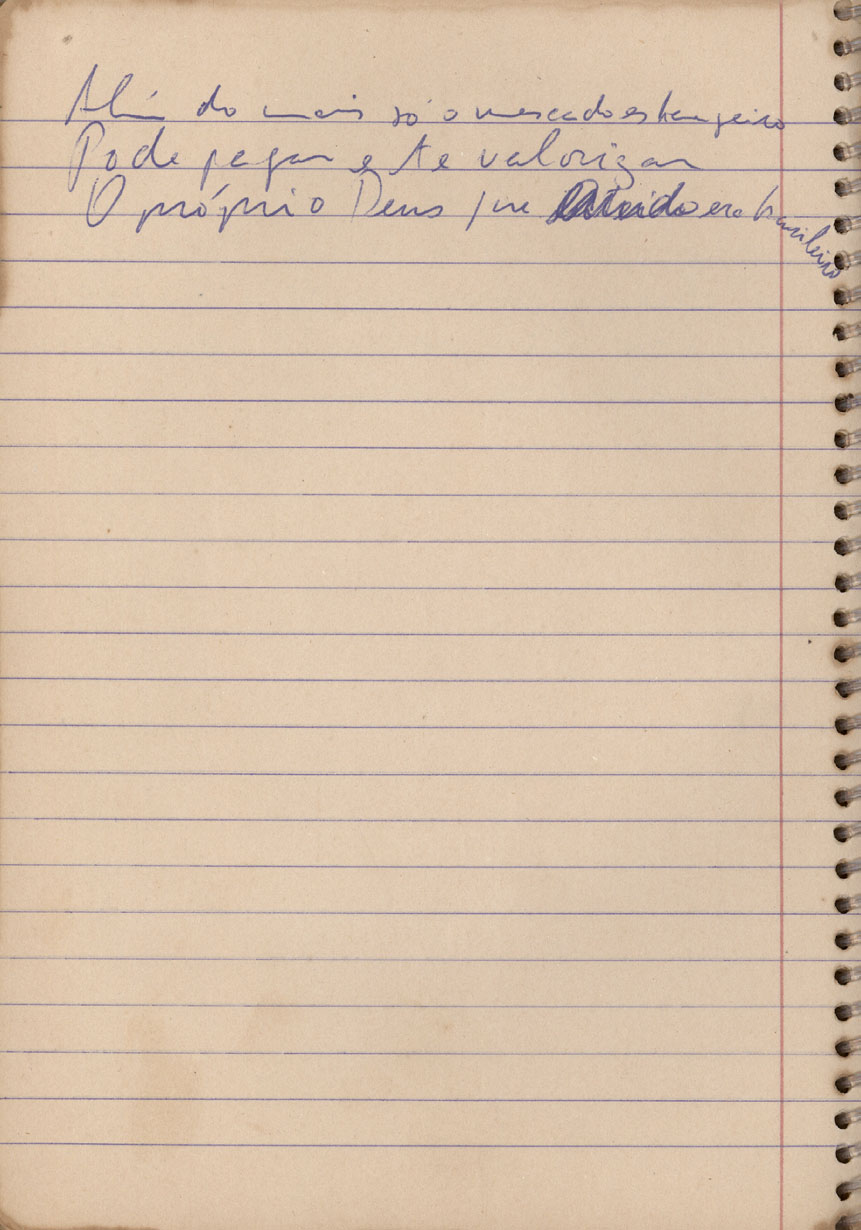 Além do mais só o mercado estrangeiro
Pode pagar e te valorizar
O próprio Deus que era brasileiro